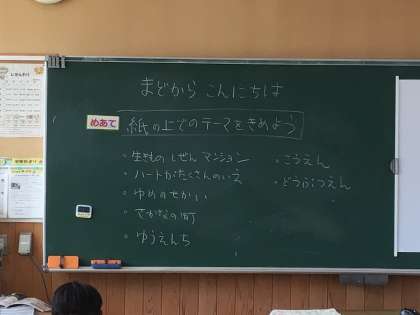 まどから こんにちは
めあて
紙の上でのテーマをきめよう
・生きもの しぜん マンション
・ハートがたくさんのいえ
・ゆめのせかい
・さかなの町
・ゆうえんち
・こうえん
・どうぶつえん